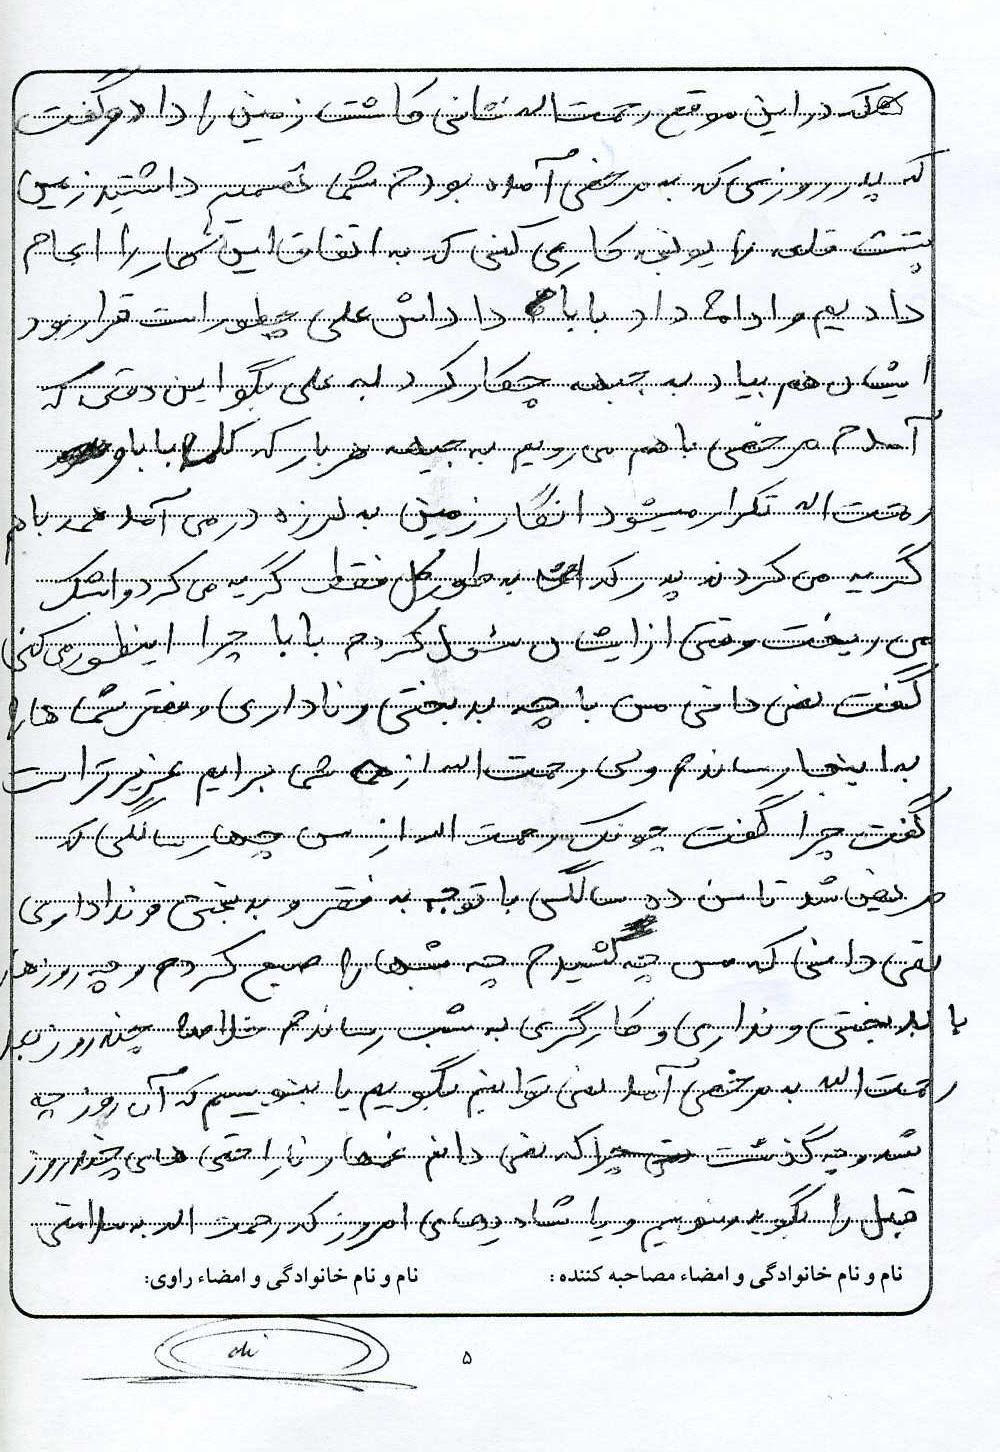 که در این موقع رحمت اله نشانی کاشت زمین را داد و گفت
که پدر روزی که به مرخصی آمده بودم شما تصمیم داشتید زمین
پشت قلعه را یونجه کاری کنی که به اتفاق این کار را انجام
دادیم و ادامه داد بابا داداش علی چطور است قرار بود
ایشان هم بیاد به جبهه چکار کرد به علی بگو این دفتی که
آمدم مرخصی با هم می رویم به جبهه هر بار که کلمه بابا و
رحمت اله تکرار میشود انگار زمین به لرزه در می آمد همه باهم
گریه می کردند پدر که به طور کل فقط گریه می کرد و اشک
می ریخت وقتی از ایشان سئول کردم بابا چرا اینطور می کنی
گفت نمی دانی من با چه بدبختی و ناداری و فقر شما ها را
به اینجا رساندم ولی رحمت اله از همه شما برایم عزیزتر است
گفت چرا گفت چونکه رحمت اله از سن چهار سالگی که
مریض شد تا سن ده سالگی با توجه به فقر و بدبختی و نداداری
نمی دانی که من چه کشیدم چه شبها را صبح کردم و چه روزها
با بدبختی و نداری و کارگری به شب رساندم خلاصه چند روز بعد
رحمت اله به مرخصی آمد نمی توانیم بگوییم یا بنویسم که آن روز چه
شد و چه گذشت چرا که نمی دانم غمها و ناراحتی های چند روز
قبل را بگوید بنویسم و یا شادیهای امروز که رحمت اله به سلامتی
نام و نام خانوادگی و امضاء مصاحبه کننده: نام و نام خانوادگی و امضاء راوی:
۵